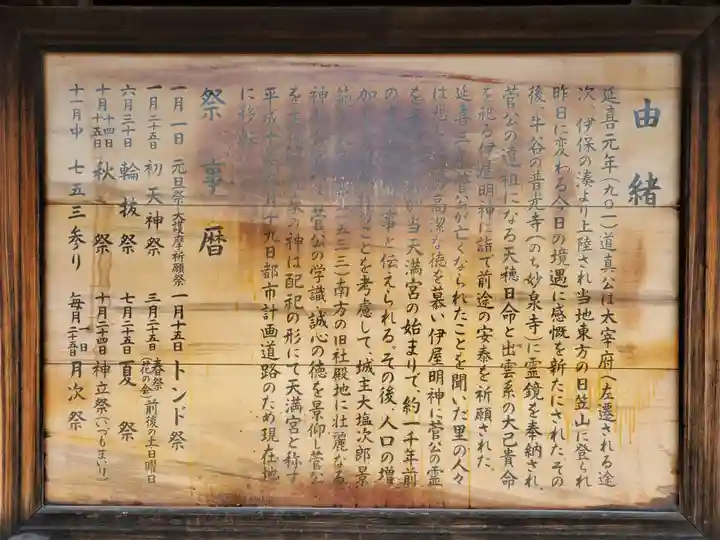 由緒
延喜元年(九〇一)道真公は太宰府へ左遷される途
次、伊保の湊より上陸され当地東方の日笠山に登られ
昨日に変わる今日の境遇に感慨を新たにされたその
後、牛谷の普光寺(のち妙泉寺)に霊鏡を奉納され
菅公の遠祖になる天穂日命と出雲系の大己貴命
を祀る伊屋明神に詣で前途の安泰を祈願された。
延喜三年菅公が亡くなられたことを聞いた里の人々
は悲し 高潔な徳を慕い伊屋明神に菅公の霊
を 当天満宮の始まりで、約一千年前
の 事と伝えられる。その後人口の増
加 ことを考慮して、城主大塩次郎景
範 五三三)南方の旧社殿地に壮麗なる
神 菅公の学識、誠心の徳を景仰し菅公
を 神は配祀の形にて天満宮と称す
平成十 月十九日都市計画道路のため現在地
に移転
祭事暦
一月一日 元旦祭・大護摩祈願祭
一月十五日 トンド祭
一月二十五日 初天神祭
三月二十五日 春祭(花の会)前後の土日曜日
六月三十日 輪抜祭
七月二十五日 夏祭
十月十四日十五日 秋祭
十月二十四日 神立祭(いづもまいり)
十一月中 七五三参り
毎月一日二十五日 月次祭